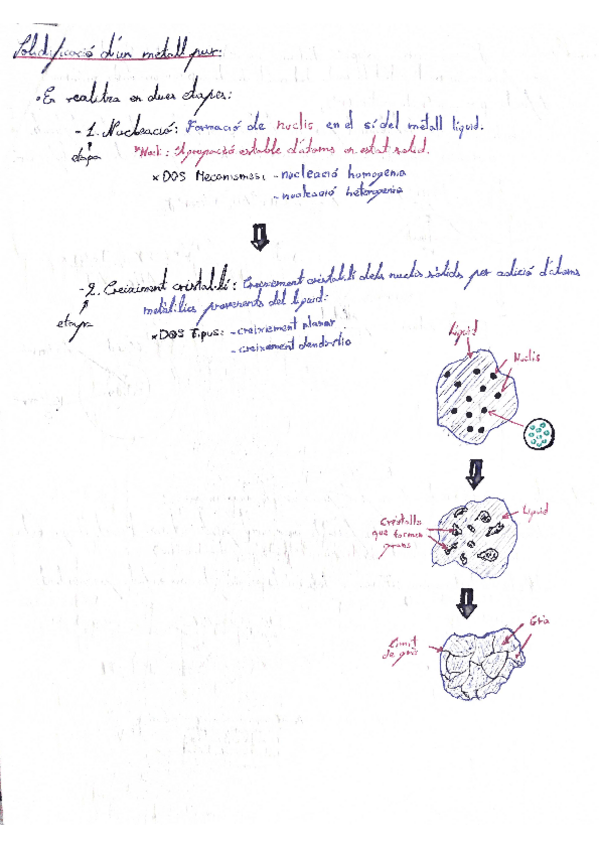 Solidificació d'un metall pur:
• Es realitza en dues etapes:
- 1. Nucleació: Formació de nuclis en el sí del metall líquid.
etapa
*Nucli: Agrupació estable d'àtoms en estat sòlid.
× DOS Mecanismes: - nucleació homogènia
- nucleació heterogènia
- 2. Creixement cristal·lí: Creixement cristal·lí dels nuclis sòlids per adició d'àtoms
metàl·lics provenents del líquid:
etapa
× DOS Tipus: - creixement planar
- creixement dendrític
Líquid
Nuclis
Líquid
Cristalls
que formen
grans
Grà
Límit
de grà